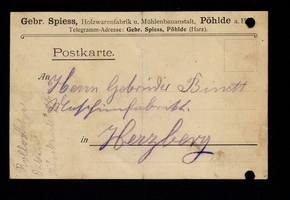 Gebr. Spiess, Holzwarenfabrik u. Mühlenbauanstalt, Pöhlde a. H.
Telegramm-Adresse: Gebr. Spiess, Pöhlde (Harz).
Postkarte.
An Herrn Gebrüder
Maschinenfabrik
in Herzberg